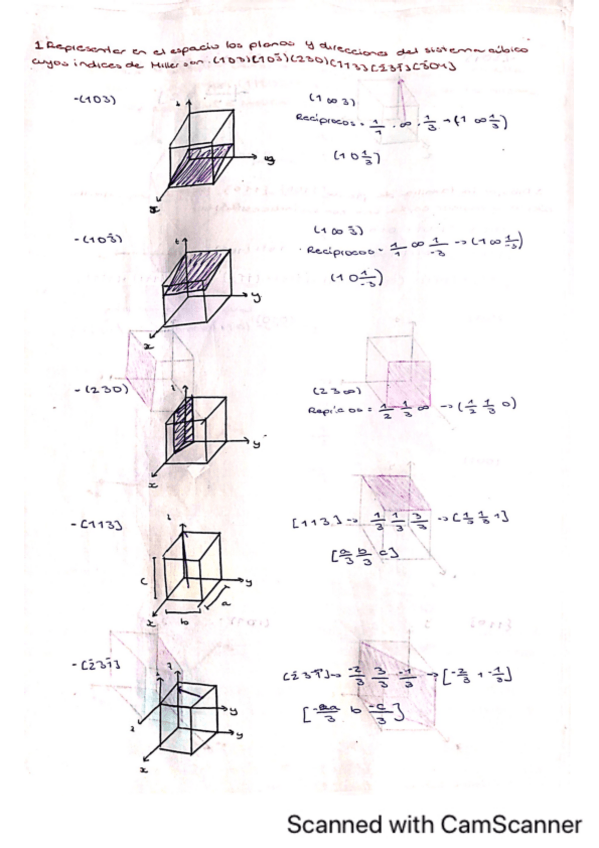 1 Representar en el espacio los planos y direcciones del sistema cúbico
cuyos índices de Miller son: (103)(103̄)(230)[113][2̄31̄][3̄01]
-(103)
(1 ∞ 3)
Recíprocos = 1/1 · ∞ · 1/3 → (1 ∞ 1/3)
(1 0 1/3)
y
x
-(103̄)
(1 ∞ 3̄)
Recíprocos = 1/1 ∞ 1/-3 -> (1 ∞ 1/-3)
(1 0 1/-3)
y
x
-(230)
(2 3 ∞)
= 1/2 1/3 ∞ -> (1/2 1/3 0)
y
x
-[113]
[113] -> 1/3 1/3 3/3 -> [1/3 1/3 1]
[a/3 b/3 c]
c
y
a
x
b
-[2̄31̄]
[2̄31̄] -> -2/3 3/3 -1/3 -> [-2/3 1 -1/3]
[-2a/3 b -c/3]
y
y
x
Scanned with CamScanner